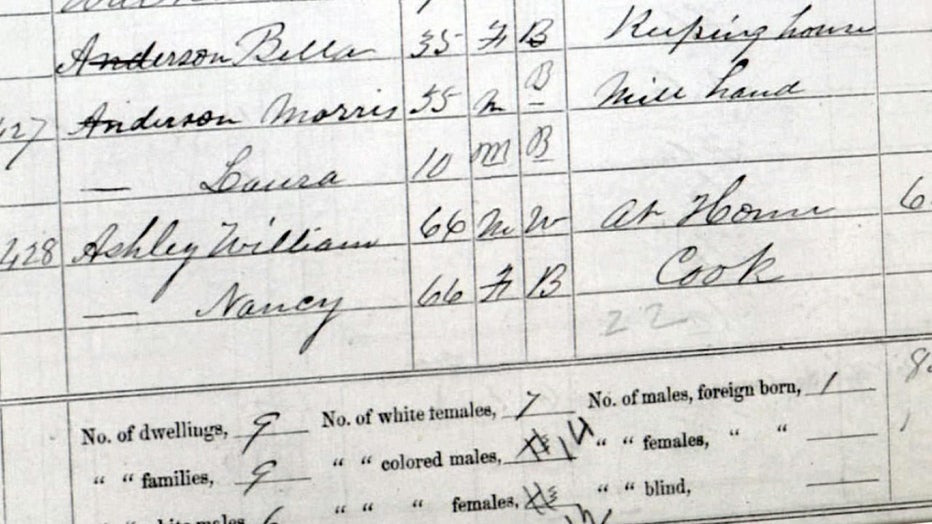 Anderson Bella 35 F B Keeping house
427 Anderson Morris 55 m B Mill hand
— Laura 10 M B
428 Ashley William 66 M W at Home 6
— Nancy 66 F B Cook
22
No. of dwellings, 9 No. of white females, 7 No. of males, foreign born, 1
" " families, 9 " " colored males, 14 " " females, " "
" " " females, " " blind,